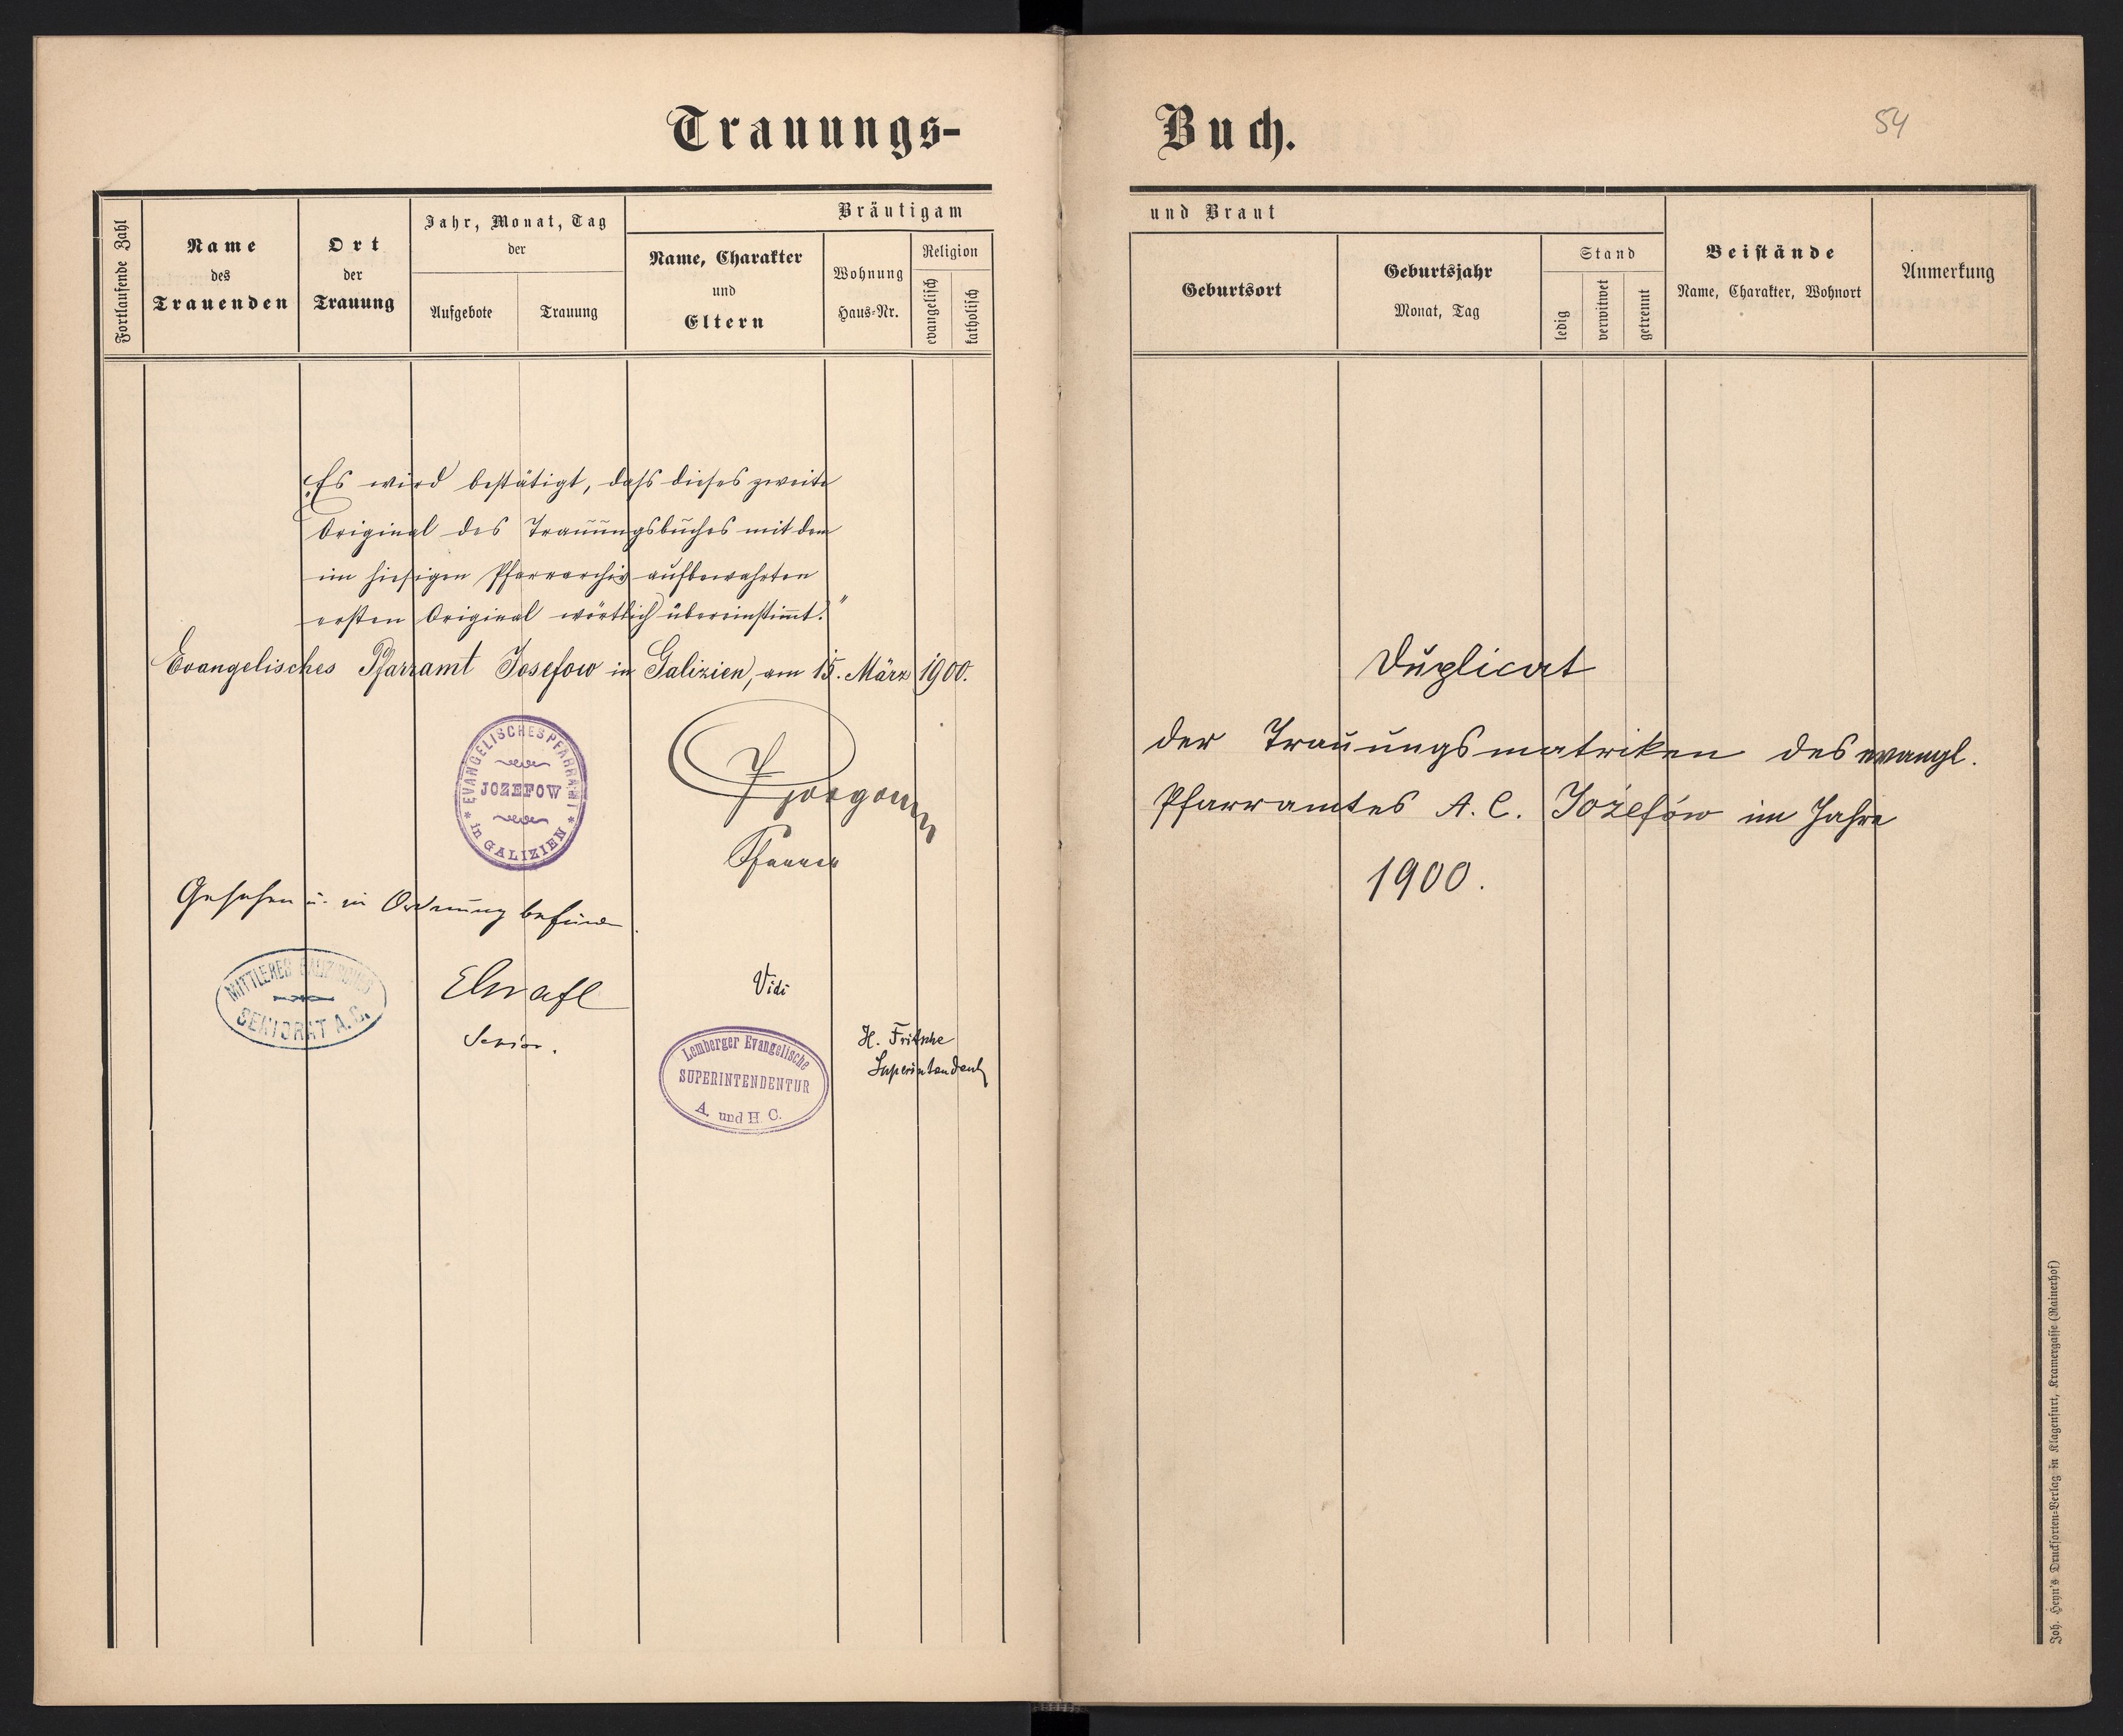 Trauungs-
Fortlaufende Zahl
Name
des
Trauenden
Ort
der
Trauung
Jahr, Monat, Tag
der
Aufgebote
Trauung
Bräutigam
Name, Charakter
und
Eltern
Wohnung
Haus-Nr.
Religion
evangelisch
katholisch
„Es wird bestätigt, dass dieses zweite
Original des Trauungsbuches mit dem
im hiesigen Pfarrarchiv aufbewahrten
ersten Original wörtlich übereinstimmt."
Evangelisches Pfarramt Josefow in Galizien, am 15. März 1900.
EVANGELISCHES PFARRAMT
JOZEFOW
in GALIZIEN
Pfarrer
Gesehen u. in Ordnung befunden
MITTLERES GALIZISCHES
SENIORAT A. C.
Senior.
Vidi
Lemberger Evangelische
SUPERINTENDENTUR
A. und H. C.
H. Fritsche
Superintendent
Buch.
54
und Braut
Geburtsort
Geburtsjahr
Monat, Tag
Stand
ledig
verwitwet
getrennt
Beistände
Name, Charakter, Wohnort
Anmerkung
Duplicat
der Trauungsmatriken des evangl.
Pfarramtes A. C. Józefów im Jahre
1900.
Joh. Heyn's Drucksorten-Verlag in Klagenfurt, Kramergasse (Rainerhof)